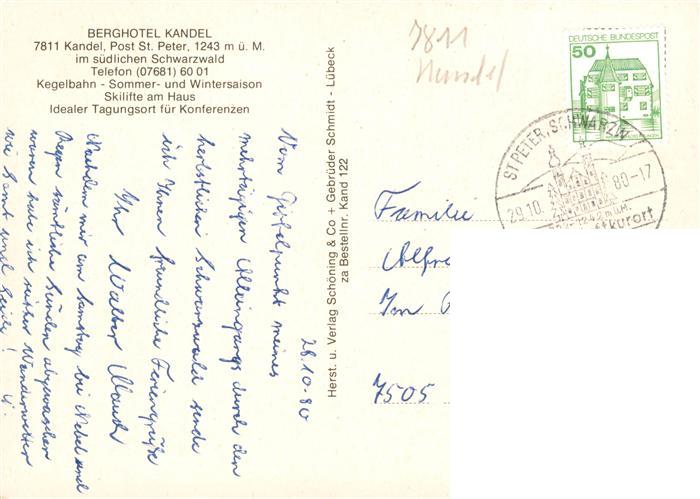 BERGHOTEL KANDEL
7811 Kandel, Post St. Peter, 1243 m ü. M.
im südlichen Schwarzwald
Telefon (07681) 60 01
Kegelbahn - Sommer- und Wintersaison
Skilifte am Haus
Idealer Tagungsort für Konferenzen
28.10.80
Vom Gipfelpunkt meines
mehrtägigen Alleingangs durch den
herbstlichen Schwarzwald sende
ich Ihnen freundliche Feriengrüße
Ihr Walter
Nachdem mir am Samstag bei Nebel und
Regen sämtliche Sünden abgewaschen
waren habe ich seither Wanderwetter
wie Samt und Seide!
Herst. u. Verlag Schöning & Co + Gebrüder Schmidt - Lübeck
zu Bestellnr. Kand 122
7811
DEUTSCHE BUNDESPOST
50
ST PETER, SCHWARZW
29.10. 80-17
kurort
Familie
Alfre
Im
7505